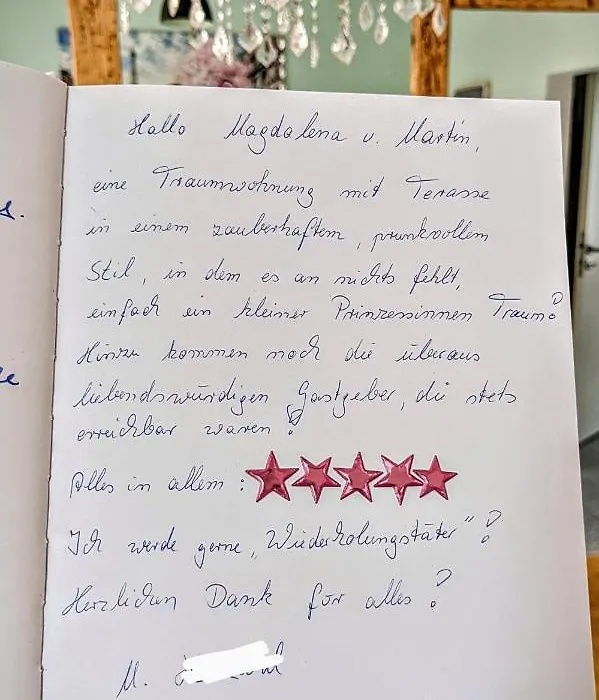 Hallo Magdalena u. Martin,
eine Traumwohnung mit Terasse
in einem zauberhaftem, prunkvollem
Stil, in dem es an nichts fehlt,
einfach ein kleiner Prinzessinnen Traum!
Hinzu kommen noch die überaus
liebendswürdigen Gastgeber, die stets
erreichbar waren!
Alles in allem :
Ich werde gerne „Wiederholungstäter“!
Herzlichen Dank für alles!
M.